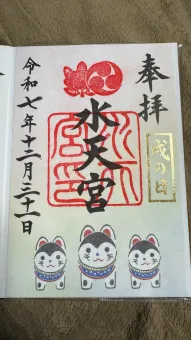 奉拝
戌の日
水天宮
令和七年十二月三十一日